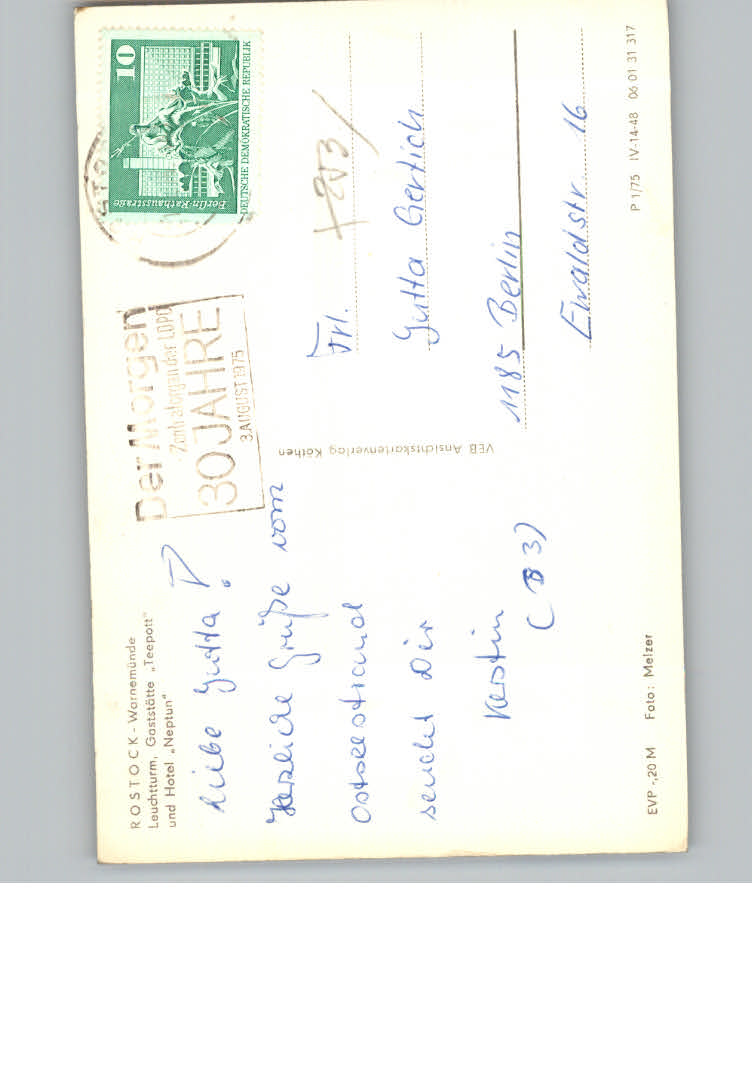 ROSTOCK - Warnemünde
Leuchtturm, Gaststätte „Teepott"
und Hotel „Neptun"
Liebe Jutta!
Herzliche Grüße vom
Ostseestrand
sendet Dir
Kerstin
(B3)
EVP -,20 M Foto: Melzer
VEB Ansichtskartenverlag Köthen
Der Morgen
Zentralorgan der LDPD
30 JAHRE
3. AUGUST 1975
10
Berlin · Rathausstraße
DEUTSCHE DEMOKRATISCHE REPUBLIK
Frl.
Jutta Gertich
1185 Berlin
Ewaldstr. 16
P 1/75 IV-14-48 06 01 31 317